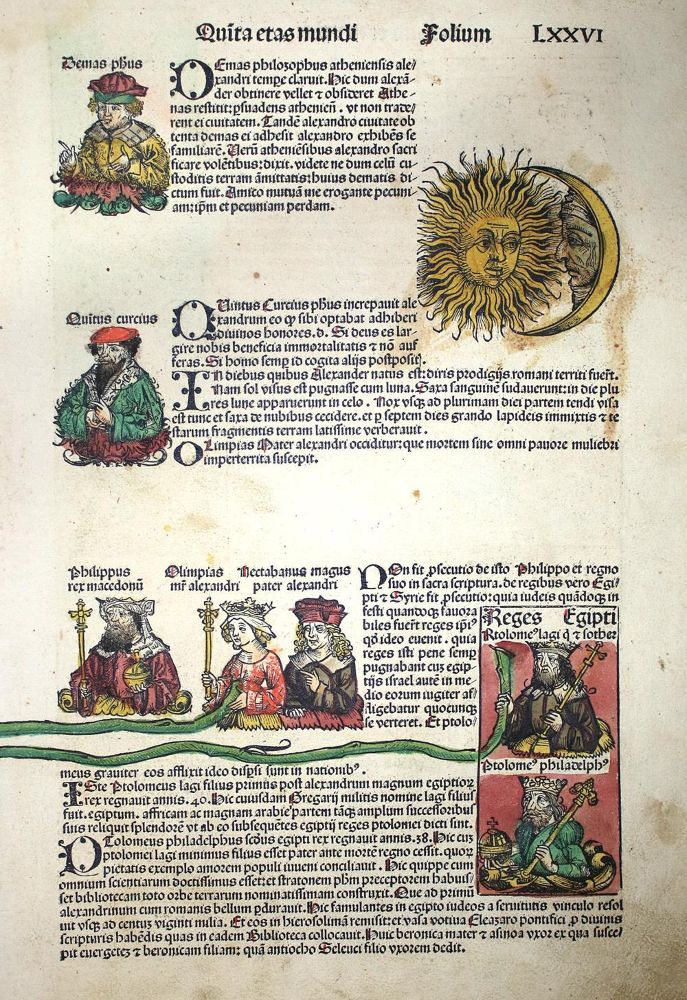 Quīta etas mundi Folium LXXVI
Demas phūs
DEmas philozophus atheniensis ale-
xandri tempe claruit. Hic dum alexā-
der obtinere vellet ⁊ obsideret Athe-
nas restitit: psuadens atheniēn. vt non trade-
rent ei ciuitatem. Tandē alexandro ciuitate ob
tenta demas ei adhesit alexandro exhibēs se
familiarē. Verū atheniēsibus alexandro sacri
ficare volētibus: dixit. videte ne dum celū cu-
stoditis terram āmittatis: huius dematis di-
ctum fuit. Amico mutuā me erogante pecuni-
am: ipm et pecuniam perdam.
Quītus curcius
QUintus Curcius phūs increpauit ale
xandrum eo ꝙ sibi optabat adhiberi
diuinos honores. d. Si deus es lar-
gire nobis beneficia immortalitatis ⁊ nō auf
feras. Si homo semp id cogita alijs postposit.
IN diebus quibus Alexander natus est: diris prodigijs romani territi fuerūt.
Nam sol visus est pugnasse cum luna. Saxa sanguinē sudauerunt: in die plu
res lune apparuerunt in celo. Nox vsqꝫ ad plurimam diei partem tendi visa
est tunc et saxa de nubibus cecidere. et p septem dies grando lapideis immixtis ⁊ te
starum fragmentis terram latissime verberauit.
OLimpias Mater alexandri occiditur: que mortem sine omni pauore muliebri
imperterrita suscepit.
Philippus
rex macedonū
Olimpias
mr̄ alexandri
Nectabanus magus
pater alexandri
NOn fit psecutio de isto Philippo et regno
suo in sacra scriptura. de regibus vero Egi-
pti ⁊ Syrie fit psecutio: quia iudeis quādoqꝫ in
festi quandoqꝫ fauora
biles fuerūt reges ipīꝰ
qd ideo euenit. quia
reges isti pene semp
pugnabant cuꝫ egip-
tijs israel autē in me
dio eorum iugiter af
fligebatur quocunqꝫ
se verteret. Et ptolo-
Reges Egipti
Ptolomeꝰ lagi q̄ ⁊ sother
Ptolomeꝰ philadelphꝰ
meus grauiter eos afflixit ideo dispsi sunt in nationibꝰ.
ISte Ptolomeus lagi filius primus post alexandrum magnum egiptiorꝫ
rex regnauit annis. 40. Hic cuiusdam Gregarij militis nomine lagi filius
fuit. egiptum. affricam ac magnam arabie partem tācqꝫ amplum successoribus
suis reliquit splendorē vt ab eo subsequētes egiptij reges ptolomei dicti sint.
PTolomeus philadelphus scdus egipti rex regnauit annis. 38. Hic cuꝫ
ptolomei lagi minimus filius esset pater ante mortē regno cessit. quorꝫ
pietatis exemplo amorem populi iuueni conciliauit. Hic quippe cum
omnium scientiarum doctissimus esset: et stratonem phm preceptorem habuis-
set bibliotecam toto orbe terrarum nominatissimam construxit. Que ad primū
alexandrinum cum romanis bellum pdurauit. Hic famulantes in egipto iudeos a seruitutis vinculo resol
uit vsqꝫ ad centuꝫ viginti milia. Et eos in hierosolimā remisit: et vasa votiua Eleazaro pontifici, p diuinis
scripturis habēdis quas in eadem Biblioteca collocauit. Huic beronica mater ⁊ asinoa vxor ex qua susce-
pit euergeteꝫ ⁊ beronicam filiam: quā antiocho Seleuci filio vxorem dedit.